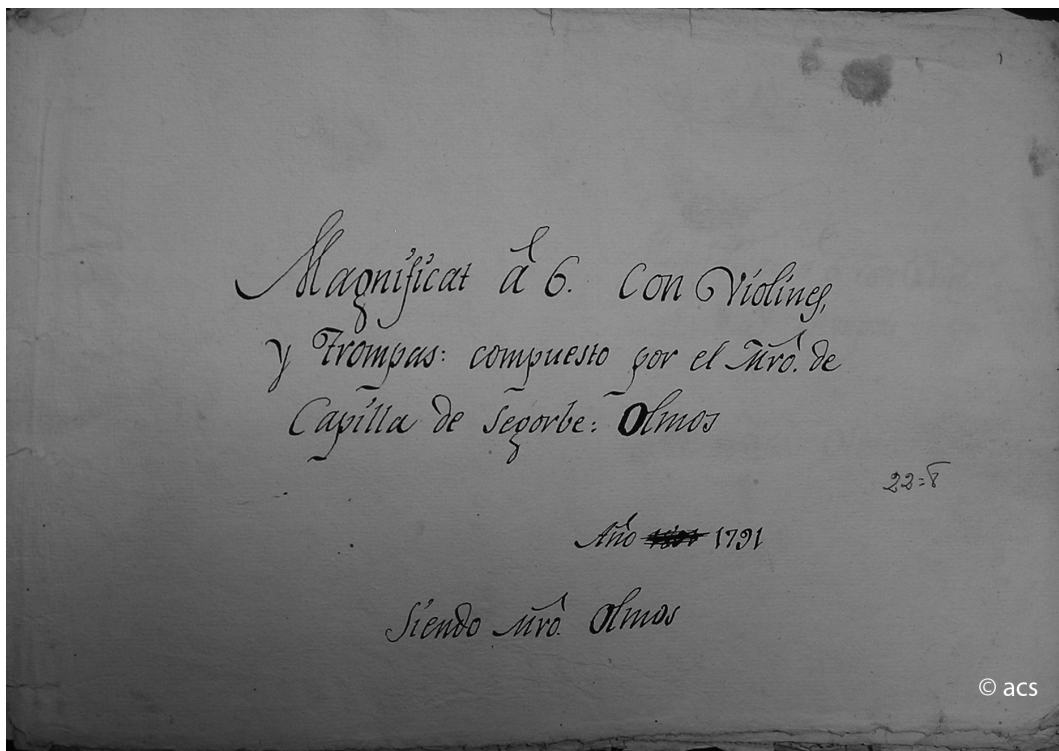 Magnificat â 6. Con Violines,
y Trompas: compuesto por el Mrô. de
Capilla de Segorbe: Olmos
22=8
Año 1791
Siendo Mrô. Olmos
© acs